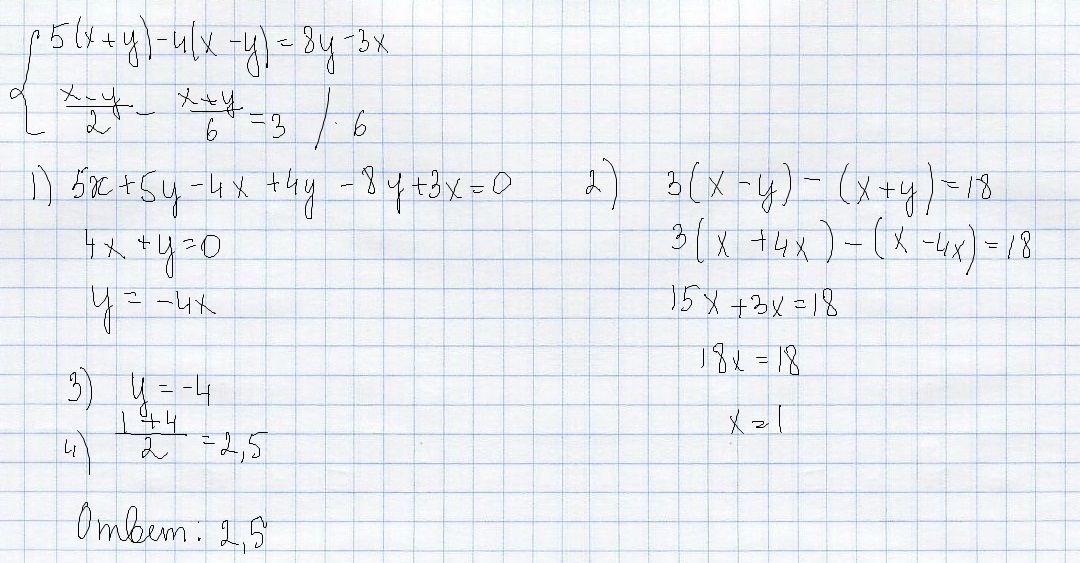 5(x+y)-4(x-y)=8y-3x
x-y/2 - x+y/6 = 3 / · 6
1) 5x+5y-4x+4y-8y+3x=0
4x+y=0
y=-4x
2) 3(x-y)-(x+y)=18
3(x+4x)-(x-4x)=18
15x+3x=18
18x=18
x=1
3) y=-4
4) 1+4/2 = 2,5
Ответ: 2,5